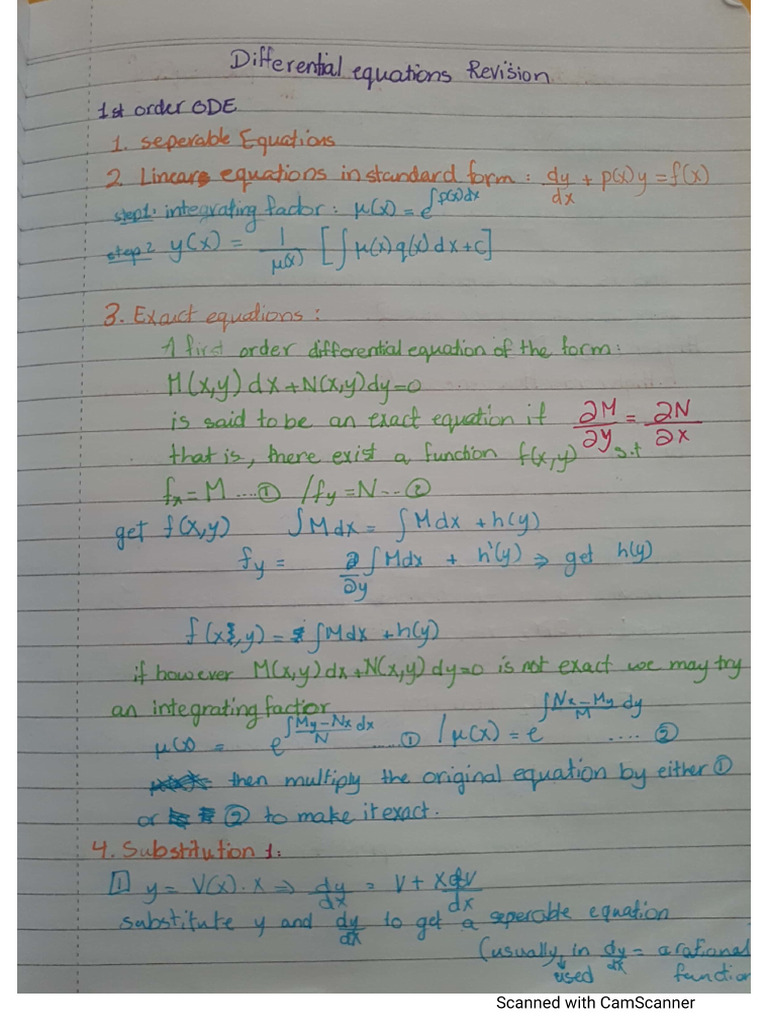 Differential equations Revision
1st order ODE
1. seperable Equations
2. Linears equations in standard form : dy/dx + p(x)y = f(x)
step1: integrating factor : μ(x) = e^∫p(x)dx
step 2 y(x) = 1/μ(x) [∫ μ(x) q(x) dx + c]
3. Exact equations :
A first order differential equation of the form:
M(x,y) dx + N(x,y)dy = 0
is said to be an exact equation if ∂M/∂y = ∂N/∂x
that is, there exist a function f(x,y) s.t
fx = M ....① / fy = N ... ②
get f(x,y) ∫Mdx = ∫Mdx + h(y)
fy = ∂/∂y ∫Mdx + h'(y) ⇒ get h(y)
f(x,y) = ∫Mdx + h(y)
if however M(x,y)dx + N(x,y) dy = 0 is not exact we may try
an integrating factior
μ(x) = e^∫(My - Nx)/N dx ..... ① / μ(x) = e^∫(Nx - My)/M dy .... ②
then multiply the original equation by either ①
or ② to make it exact.
4. Substitution 1:
1 y = V(x).x ⇒ dy/dx = V + x dV/dx
substitute y and dy/dx to get a seperable equation
(usually used in dy/dx = a rational function
Scanned with CamScanner